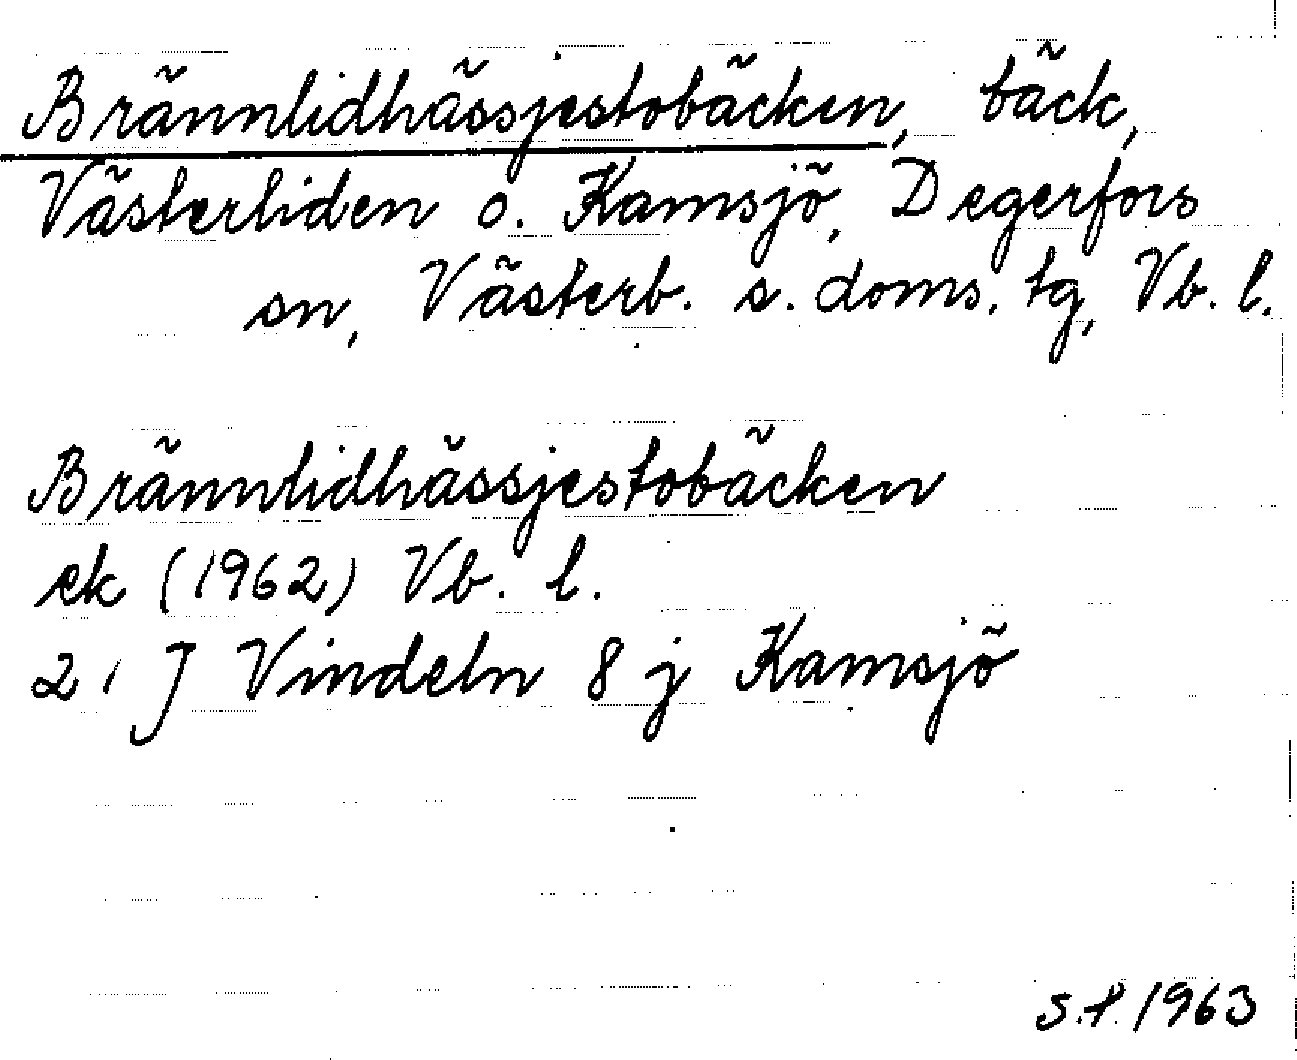 Brännlidhässjestobäcken, bäck,
Västerliden o. Kamsjö, Degerfors
sn, Västerb. s. doms. tg, Vb. l.
Brännlidhässjestobäcken
ek (1962) Vb. l.
21 J Vindeln 8 j Kamsjö
S.P. 1963